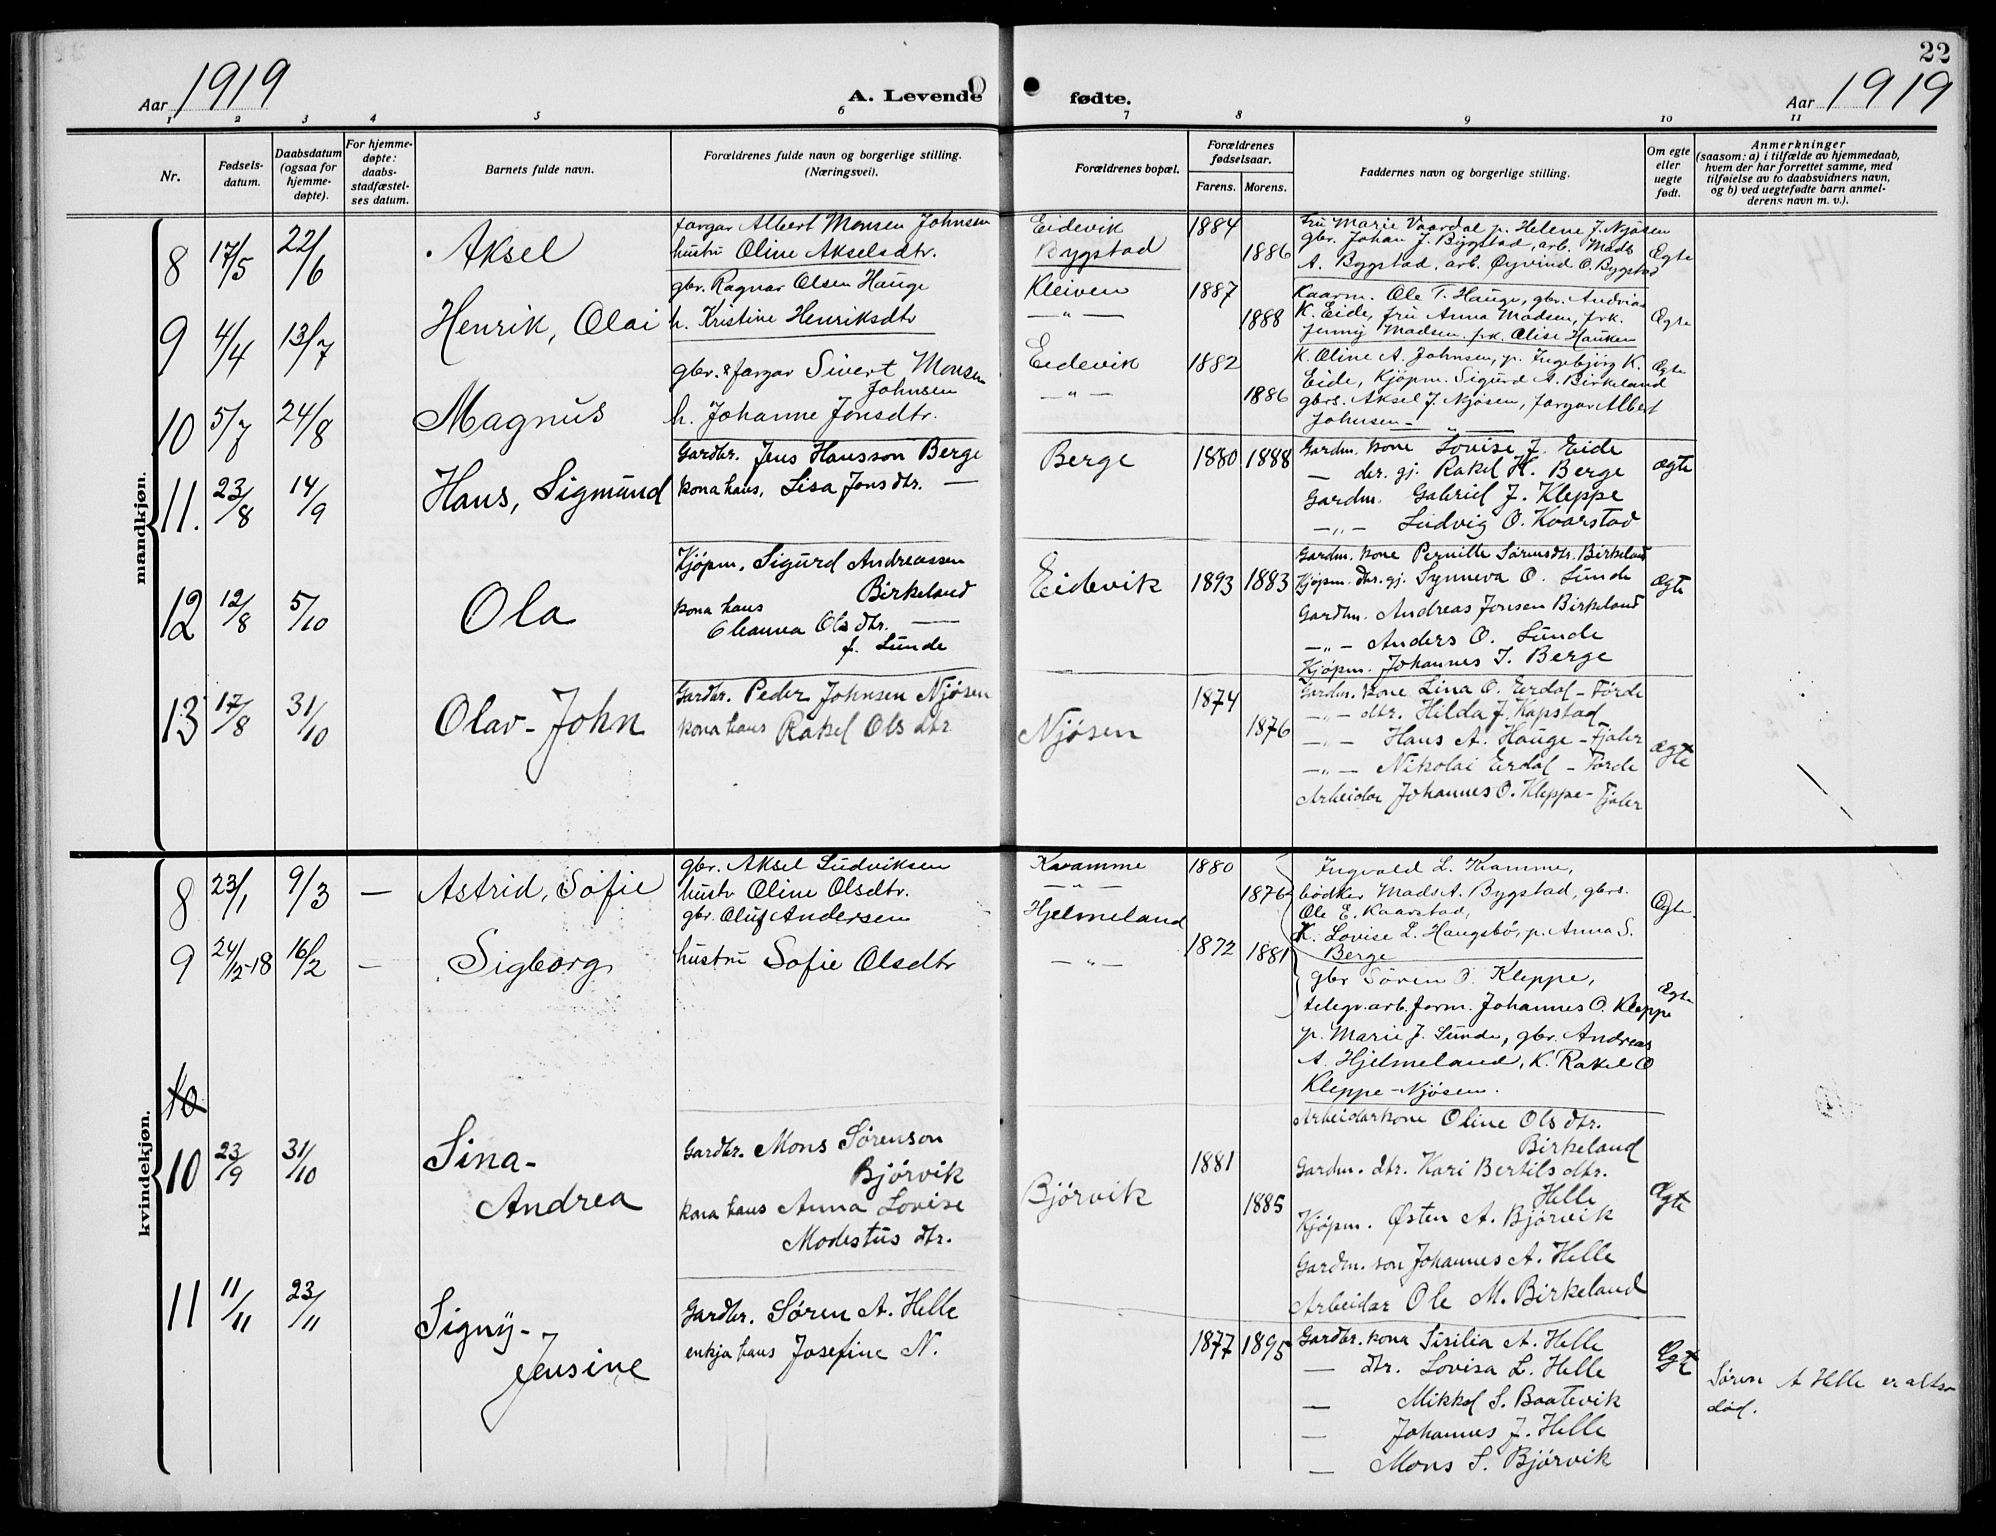 22
Aar 1919
A. Levende fødte.
Aar 1919
1 2 3 4 5 6 7 8 9 10 11
Nr.
Fødsels-
datum.
Daabsdatum
(ogsaa for
hjemme-
døpte).
For hjemme-
døpte:
daabs-
stadfæstel-
ses datum.
Barnets fulde navn.
Forældrenes fulde navn og borgerlige stilling.
(Næringsvei).
Forældrenes bopæl.
Forældrenes
fødselsaar.
Farens. Morens.
Faddernes navn og borgerlige stilling.
Om egte
eller
uegte
født.
Anmerkninger
(saasom: a) i tilfælde av hjemmedaab,
hvem der har forrettet samme, med
tilføielse av to daabsvidners navn,
og b) ved uegtefødte barn anmel-
derens navn m. v.).
mandkjøn.
8 17/5 22/6 Aksel
fargar Albert Monsen Johnsen
hustru Oline Akselsdtr.
Eidevik
Bygstad
1884 1886
Fru Marie Vaardal p. Helene J. Njøsen
gbr. Johan J. Bygstad, arb. Mads
A. Bygstad, arb. Øyvind O. Bygstad
Ægte
9 4/4 13/7 Henrik, Olai
gbr. Ragnar Olsen Hauge
h. Kristine Henriksdtr
Kleiven
— " —
1887 1888
Kaarm. Ole T. Hauge, gbr. Andrias
K. Eide, fru Anna Madsen, frk.
Jenny Madsen, frk. Olise Hauken
Ægte
10 5/7 24/8 Magnus
gbr. & fargar Sivert Monsen
Johnsen
h. Johanne Jonsdtr.
Eidevik
— " —
1882 1886
K. Oline A. Johnsen, p. Ingebjørg K.
Eide, Kjøpm. Sigurd A. Birkeland
gbrs. Aksel J. Njøsen, fargar Albert
Johnsen
Ægte
11. 23/8 14/9 Hans, Sigmund
Gardbr. Jens Hansson Berge
kona hans, Lisa Jons dtr. —
Berge
1880 1888
Gardm. kone Lovise J. Eide
— der. gj. Rakel H. Berge
Gardm. Gabriel J. Kleppe
— " — Ludvig O. Kvarstad
ægte
12 12/8 5/10 Ola
Kjøpm. Sigurd Andreassen
Birkeland
kona hans
Oleanna Ols dtr. —
f. Sunde
Eidevik
1893 1883
Gardm. kone Pernille Sørensdtr. Birkeland
Kjøpm. dtr. gj. Synneva O. Sunde
Gardm. Andreas Jonsen Birkeland
— " — Anders O. Sunde
Kjøpm. Johannes J. Berge
ægte
13 17/8 31/10 Olav-John
Gardbr. Peder Johnsen Njøsen
kona hans Rakel Ols dtr
Njøsen
1874 1876
Gardm. kone Lina O. Erdal - Førde
— " — dtr. Hilda J. Kapstad
— " — Hans A. Hauge - Fjaler
— " — Nikolai Erdal - Førde
Arbeidar Johannes O. Kleppe - Fjaler
ægte
kvindekjøn.
8 23/1 9/3 — Astrid, Sofie
gbr. Aksel Ludviksen
hustr Oline Olsdtr.
Kvamme
— " —
1880 1876
Ingvald L. Kvamme,
bødker Mads A. Bygstad, gbrs.
Ole E. Kaarstad,
K. Lovise L. Haugsbø, p. Anna S.
Berge
Ægte
9 24/12-18 16/2 — Sigborg
gbr. Oluf Andersen
hustru Sofie Olsdtr
Hjelmeland
— " —
1872 1881
gbr Søren O. Kleppe,
telegr.arb.form. Johannes O. Kleppe
p. Marie J. Sunde, gbr. Andreas
A. Hjelmeland, K. Rakel O
Kleppe - Njøsen.
Ægte
10
10 23/9 31/10 Sina-
Andrea
Gardbr. Mons Sørenson
Bjørvik
kona hans Anna Lovise
Modestus dtr.
Bjørvik
1881 1885
Arbeidarkone Oline Ols dtr.
Birkeland
Gardm. dtr. Kari Bertils dtr.
Helle
Kjøpm. Østen A. Bjørvik
Gardm. son Johannes A. Helle
Arbeidar Ole M. Birkeland
Ægte
11 11/11 23/11 Signy-
Jensine
Gardbr. Søren A. Helle
enkja hans Josefine N.
1877 1895
Gardbr. kona Sisilia A. Helle
— dtr. Lovisa L. Helle
— Mikkel S. Baatevik
— Johannes J. Helle
— Mons S. Bjørvik
Ægte
Søren A Helle er altso
død.